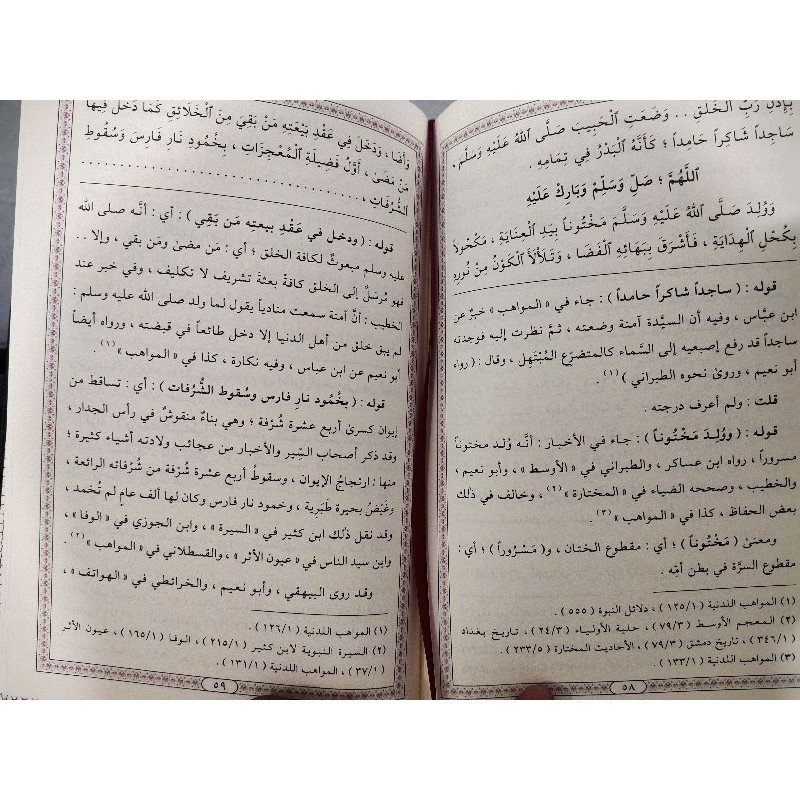 بِإِذْنِ رَبِّ ٱلْخَلْقِ . . وَضَعَتِ ٱلْحَبِيبَ صَلَّى ٱللهُ عَلَيْهِ وَسَلَّمَ ،
سَاجِداً شَاكِراً حَامِداً ؛ كَأَنَّهُ ٱلْبَدْرُ فِي تِمَامِهِ .
ٱللَّهُمَّ ؛ صَلِّ وَسَلِّمْ وَبَارِكْ عَلَيْهِ
وَوُلِدَ صَلَّى ٱللهُ عَلَيْهِ وَسَلَّمَ مَخْتُوناً بِيَدِ ٱلْعِنَايَةِ ، مَكْحُولاً
بِكُحْلِ ٱلْهِدَايَةِ ، فَأَشْرَقَ بِبَهَائِهِ ٱلْفَضَا ، وَتَلَأْلَأَ ٱلْكَوْنُ مِنْ نُورِهِ
قوله : ( ساجداً شاكراً حامداً ) : جاء في « المواهب » خبرٌ عن
ابن عبَّاس ، وفيه أن السيَّدة آمنة وضعته ، ثمَّ نظرت إليه فوجدته
ساجداً قد رفع إصبعيه إلى السَّماء كالمتضرّع المُبْتَهِل ، وقال : ( رواه
أبو نعيم ، وروىٰ نحوه الطبراني ) (١) .
قلت : ولم أعرف درجته .
قوله : ( وَوُلِدَ مَخْتُوناً ) : جاء في الأخبار : أنَّه وُلد مختوناً
مسروراً ، رواه ابن عساكر ، والطبراني في « الأوسط » ، وأبو نعيم ،
والخطيب ، وصححه الضياء في « المختارة » (٢) ، وخالف في ذلك
بعض الحفاظ ، كذا في « المواهب » (٣) .
ومعنىٰ ( مَخْتُوناً ) ؛ أي : مقطوع الختان ، و( مَسْرُوراً ) ؛ أي :
مقطوع السرَّة في بطن أمّه .
(١) المواهب اللدنية ( ١/ ١٢٥ ) ، دلائل النبوة ( ٥٥٥ ) .
(٢) المعجم الأوسط ( ٧٩/٣ ) ، حلية الأولياء ( ٢٤/٣ ) ، تاريخ بغداد
( ٣٤٦/١ ) ، تاريخ دمشق ( ٧٩/٣ ) ، الأحاديث المختارة ( ٢٣٣/٥ ) .
(٣) المواهب اللدنية ( ١٣٣/١ ) .
٥٨
وَأَضَا ، وَدَخَلَ فِي عَقْدِ بَيْعَتِهِ مَنْ بَقِيَ مِنَ ٱلْخَلَائِقِ كَمَا دَخَلَ فِيهَا
مَنْ مَضَىٰ ، أَوَّلُ فَضِيلَةِ ٱلْمُعْجِزَاتِ ، بِخُمُودِ نَارِ فَارِسَ وَسُقُوطِ
ٱلشُّرُفَاتِ ،
قوله : ( ودخل في عَقْدِ بيعته مَن بَقِي ) : أي : أنَّه صلى الله
عليه وسلم مبعوثٌ لكافة الخلق ؛ أي : مَن مضىٰ ومَن بقي ، وإلا . .
فهو مُرسَلٌ إلى الخلق كافةً بعثةَ تشريف لا تكليف ، وفي خبر عند
الخطيب : أنَّ آمنة سمعت منادياً يقول لما ولد صلى الله عليه وسلم :
لم يبق خلق من أهل الدنيا إلا دخل طائعاً في قبضته ، ورواه أيضاً
أبو نعيم عن ابن عباس ، وفيه نكارة ، كذا في « المواهب » (١) .
قوله : ( بخُمُود نار فارس وسُقوط الشُّرُفات ) ؛ أي : تساقط من
إيوان كسرىٰ أربع عشرة شُرْفة ؛ وهي بناءٌ منقوشٌ في رأس الجدار ،
وقد ذكر أصحاب السِّير والأخبار من عجائب ولادته أشياء كثيرة ؛
منها : ارتجاجُ الإيوان ، وسقوطُ أربع عشرة شُرْفة من شُرُفاته الرائعة ،
وغَيْضُ بحيرة طَبَرِية ، وخمود نار فارس وكان لها ألف عامٍ لم تُخمد ،
وقد نقل ذٰلك ابن كثير في « السيرة » ، وابن الجوزي في « الوفا » ،
وابن سيد الناس في « عيون الأثر » ، والقسطلاني في « المواهب » (٢) .
وقد روى البيهقي ، وأبو نعيم ، والخرائطي في « الهواتف » ،
(١) المواهب اللدنية ( ١٢٦/١ ) .
(٢) السيرة النبوية لابن كثير ( ٢١٥/١ ) ، الوفا ( ١٦٥/١ ) ، عيون الأثر
( ٣٧/١ ) ، المواهب اللدنية ( ١٣١/١ ) .
٥٩